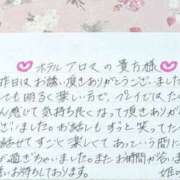 ホテルアロマの貴方様
昨日はお誘い頂きありがとうございました
ても明るく楽しい方で、プレイではたく
ん感じて気持ち良くなって頂きありが
いました。お話しもずうと笑ってた
お話せてすごく楽しくてあっという間に時
が過ぎちゃいました。またお時間が合いま
お待ちしております。